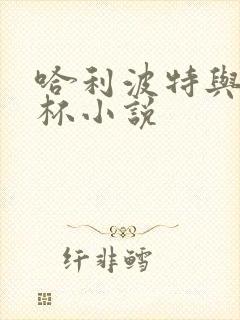 哈利波特與
杯小説
纤非鳕